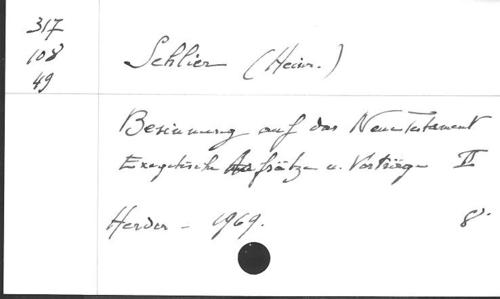 317
108
49
Schlier (Heinr.)
Besinnung auf das Neue Testament
Exegetische Aufsätze u. Vorträge II
Herder - 1969. 8°.